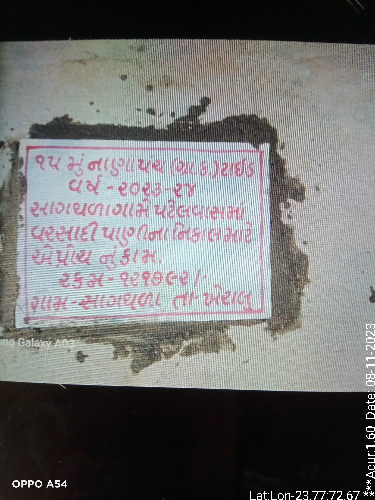 ૧૫ મું નાણાપંચ (ગ્રા.ક.) ટાઈડ
વર્ષ - ૨૦૨૩-૨૪
સાગથળા ગામે પટેલવાસમાં
વરસાદી પાણીના નિકાલ માટે
એપ્રોચ નું કામ.
૨કમ - ૧૨૧૭૯૨/-
ગામ - સાગથળા તા- ખેરાલુ
Galaxy A03
OPPO A54
Lat:Lon-23.77:72.67 ***Acur:1.60 Date: 08-11-2023